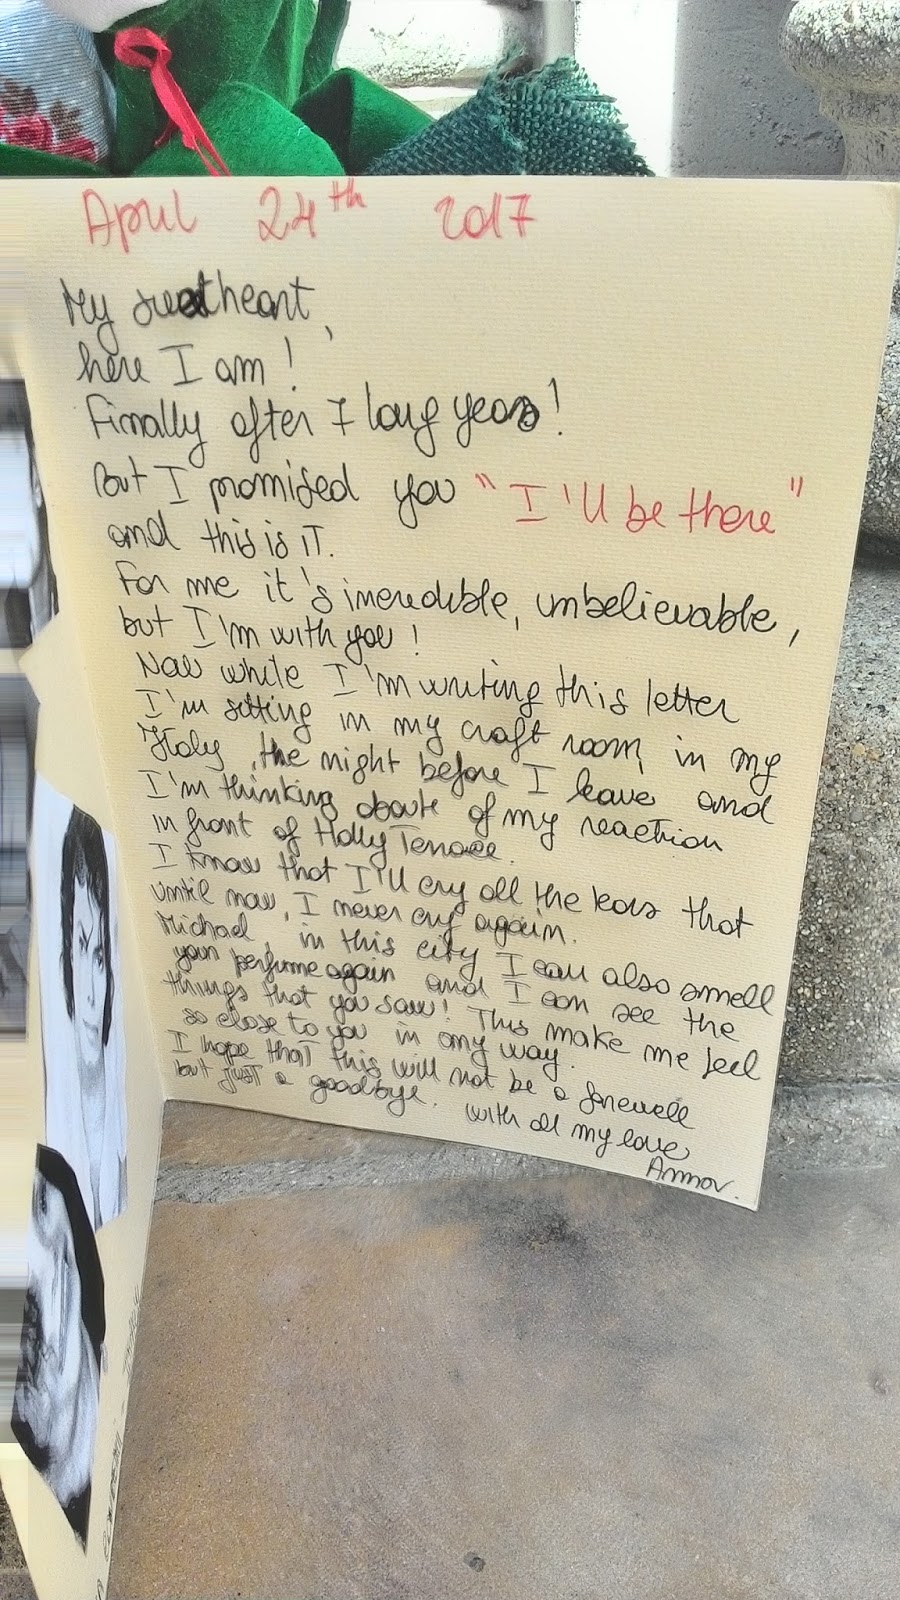 April 24th 2017
My sweetheart,
here I am!
Finally after 7 long years!
But I promised you "I'll be there"
and this is it.
For me it's incredible, unbelievable,
but I'm with you!
Now while I'm writing this letter
I'm sitting in my craft room, in my
Italy, the night before I leave and
I'm thinking about of my reaction
in front of Holly Terrace.
I know that I'll cry all the tears that
until now, I never cry again.
Michael, in this city I can also smell
your perfume again and I can see the
things that you saw! This make me feel
so close to you in any way.
I hope that this will not be a farewell
but just a goodbye.
With all my love